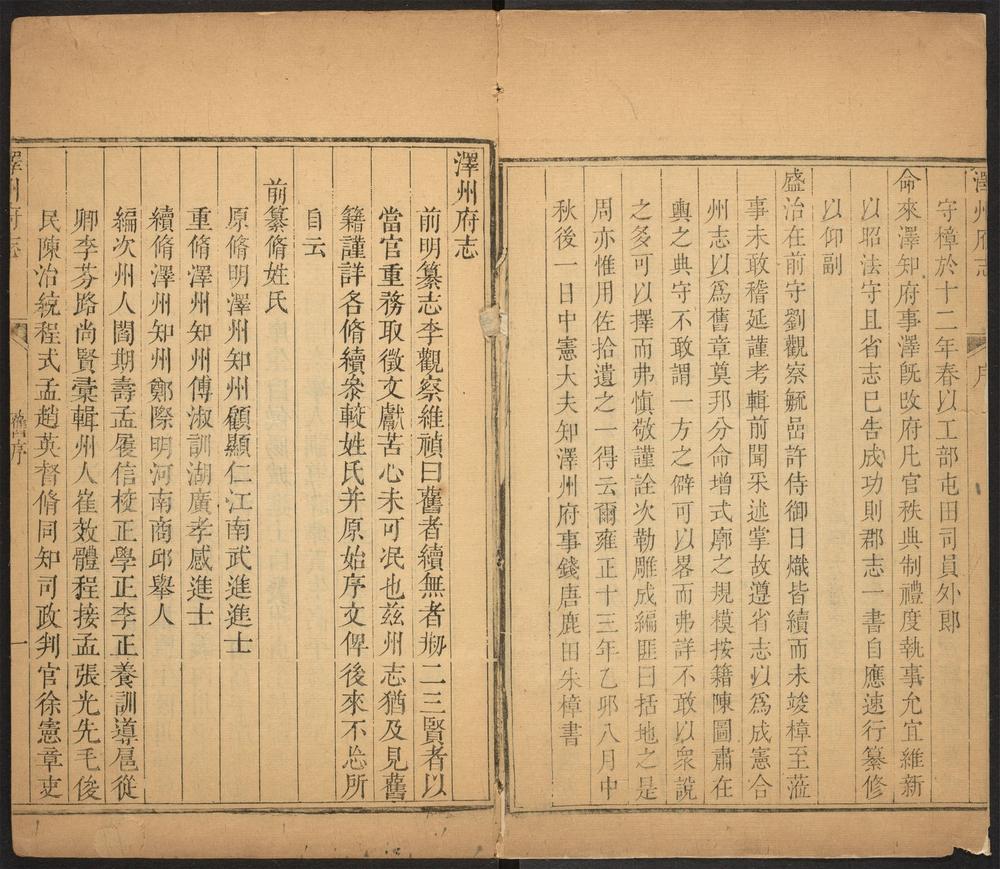 澤州府志
序
守樟於十二年春以工部屯田司員外郎
命來澤知府事澤旣改府凡官秩典制禮度執事允宜維新
以昭法守且省志已告成功則郡志一書自應速行纂修
以仰副
盛治在前守劉觀察毓嵒許侍御日熾皆續而未竣樟至蒞
事未敢稽延謹考輯前聞采述掌故遵省志以爲成憲合
州志以爲舊章奠邦分命增式廓之規模按籍陳圖肅在
輿之典守不敢謂一方之僻可以畧而弗詳不敢以衆說
之多可以擇而弗愼敬謹詮次勒雕成編匪曰括地之是
周亦惟用佐拾遺之一得云爾雍正十三年乙卯八月中
秋後一日中憲大夫知澤州府事錢唐鹿田朱樟書
澤州府志
前明纂志李觀察維禎曰舊者續無者刱二三賢者以
當官重務取徵文獻苦心未可泯也茲州志猶及見舊
籍謹詳各脩續叅較姓氏并原始序文俾後來不忘所
自云
前纂脩姓氏
原脩明澤州知州顧顯仁江南武進進士
重脩澤州知州傅淑訓湖廣孝感進士
續脩澤州知州鄭際明河南商邱舉人
編次州人閻期壽孟履信校正學正李正養訓導扈從
卿李芬路尚賢彙輯州人崔效體程接孟張光先毛俊
民陳治統程式孟趙英督脩同知司政判官徐憲章吏
澤州府志
舊序
一